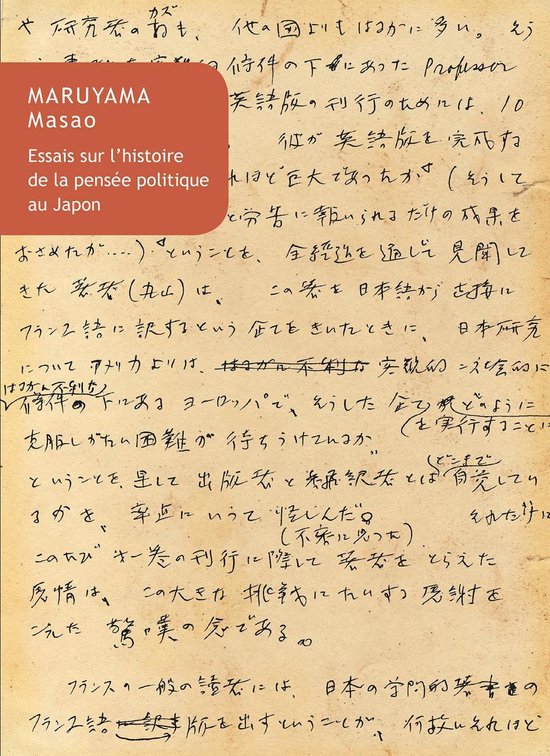 や 研究者の数(カズ)も、他の国よりもはるかに多い。そう
条件の下にあった Professor
MARUYAMA
Masao
英語版の刊行のためには、10
彼が英語版を完成する
Essais sur l’histoire
de la pensée politique
au Japon
れほど巨大であったか (そうして
と労苦に報いられるだけの成果を
おさめたか‥‥) ということを、全経過を通じて見聞して
きた 著者(丸山)は、この書を日本語から直接に
フランス語に訳するという企てをきいたときに、日本研究
について アメリカよりは、はるかに不利な 客観的=社会的に
はるかに不利な
条件の下にあるヨーロッパで、そうした企て どのように
を実行することに
克服しがたい困難が待ちうけているか
ということを、果して出版者と翻訳者とは どこまで 自覚してい
るかを、率直にいって 怪しんだ。 それだけに
(不審に思った)
このたび 第一巻の刊行に際して 著者を とらえた
感情は、この大きな挑戦にたいする感謝を
こえた 驚嘆の念である。
フランスの一般の読者には、日本の学問的著書の
フランス語 訳 版を出すということが、何故それほど